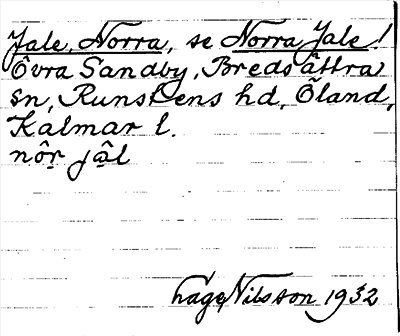 Jale, Norra, se Norra Jale!
Övra Sandby, Bredsättra
sn, Runstens hd, Öland,
Kalmar l.
nôr jâl
Nilsson 1932